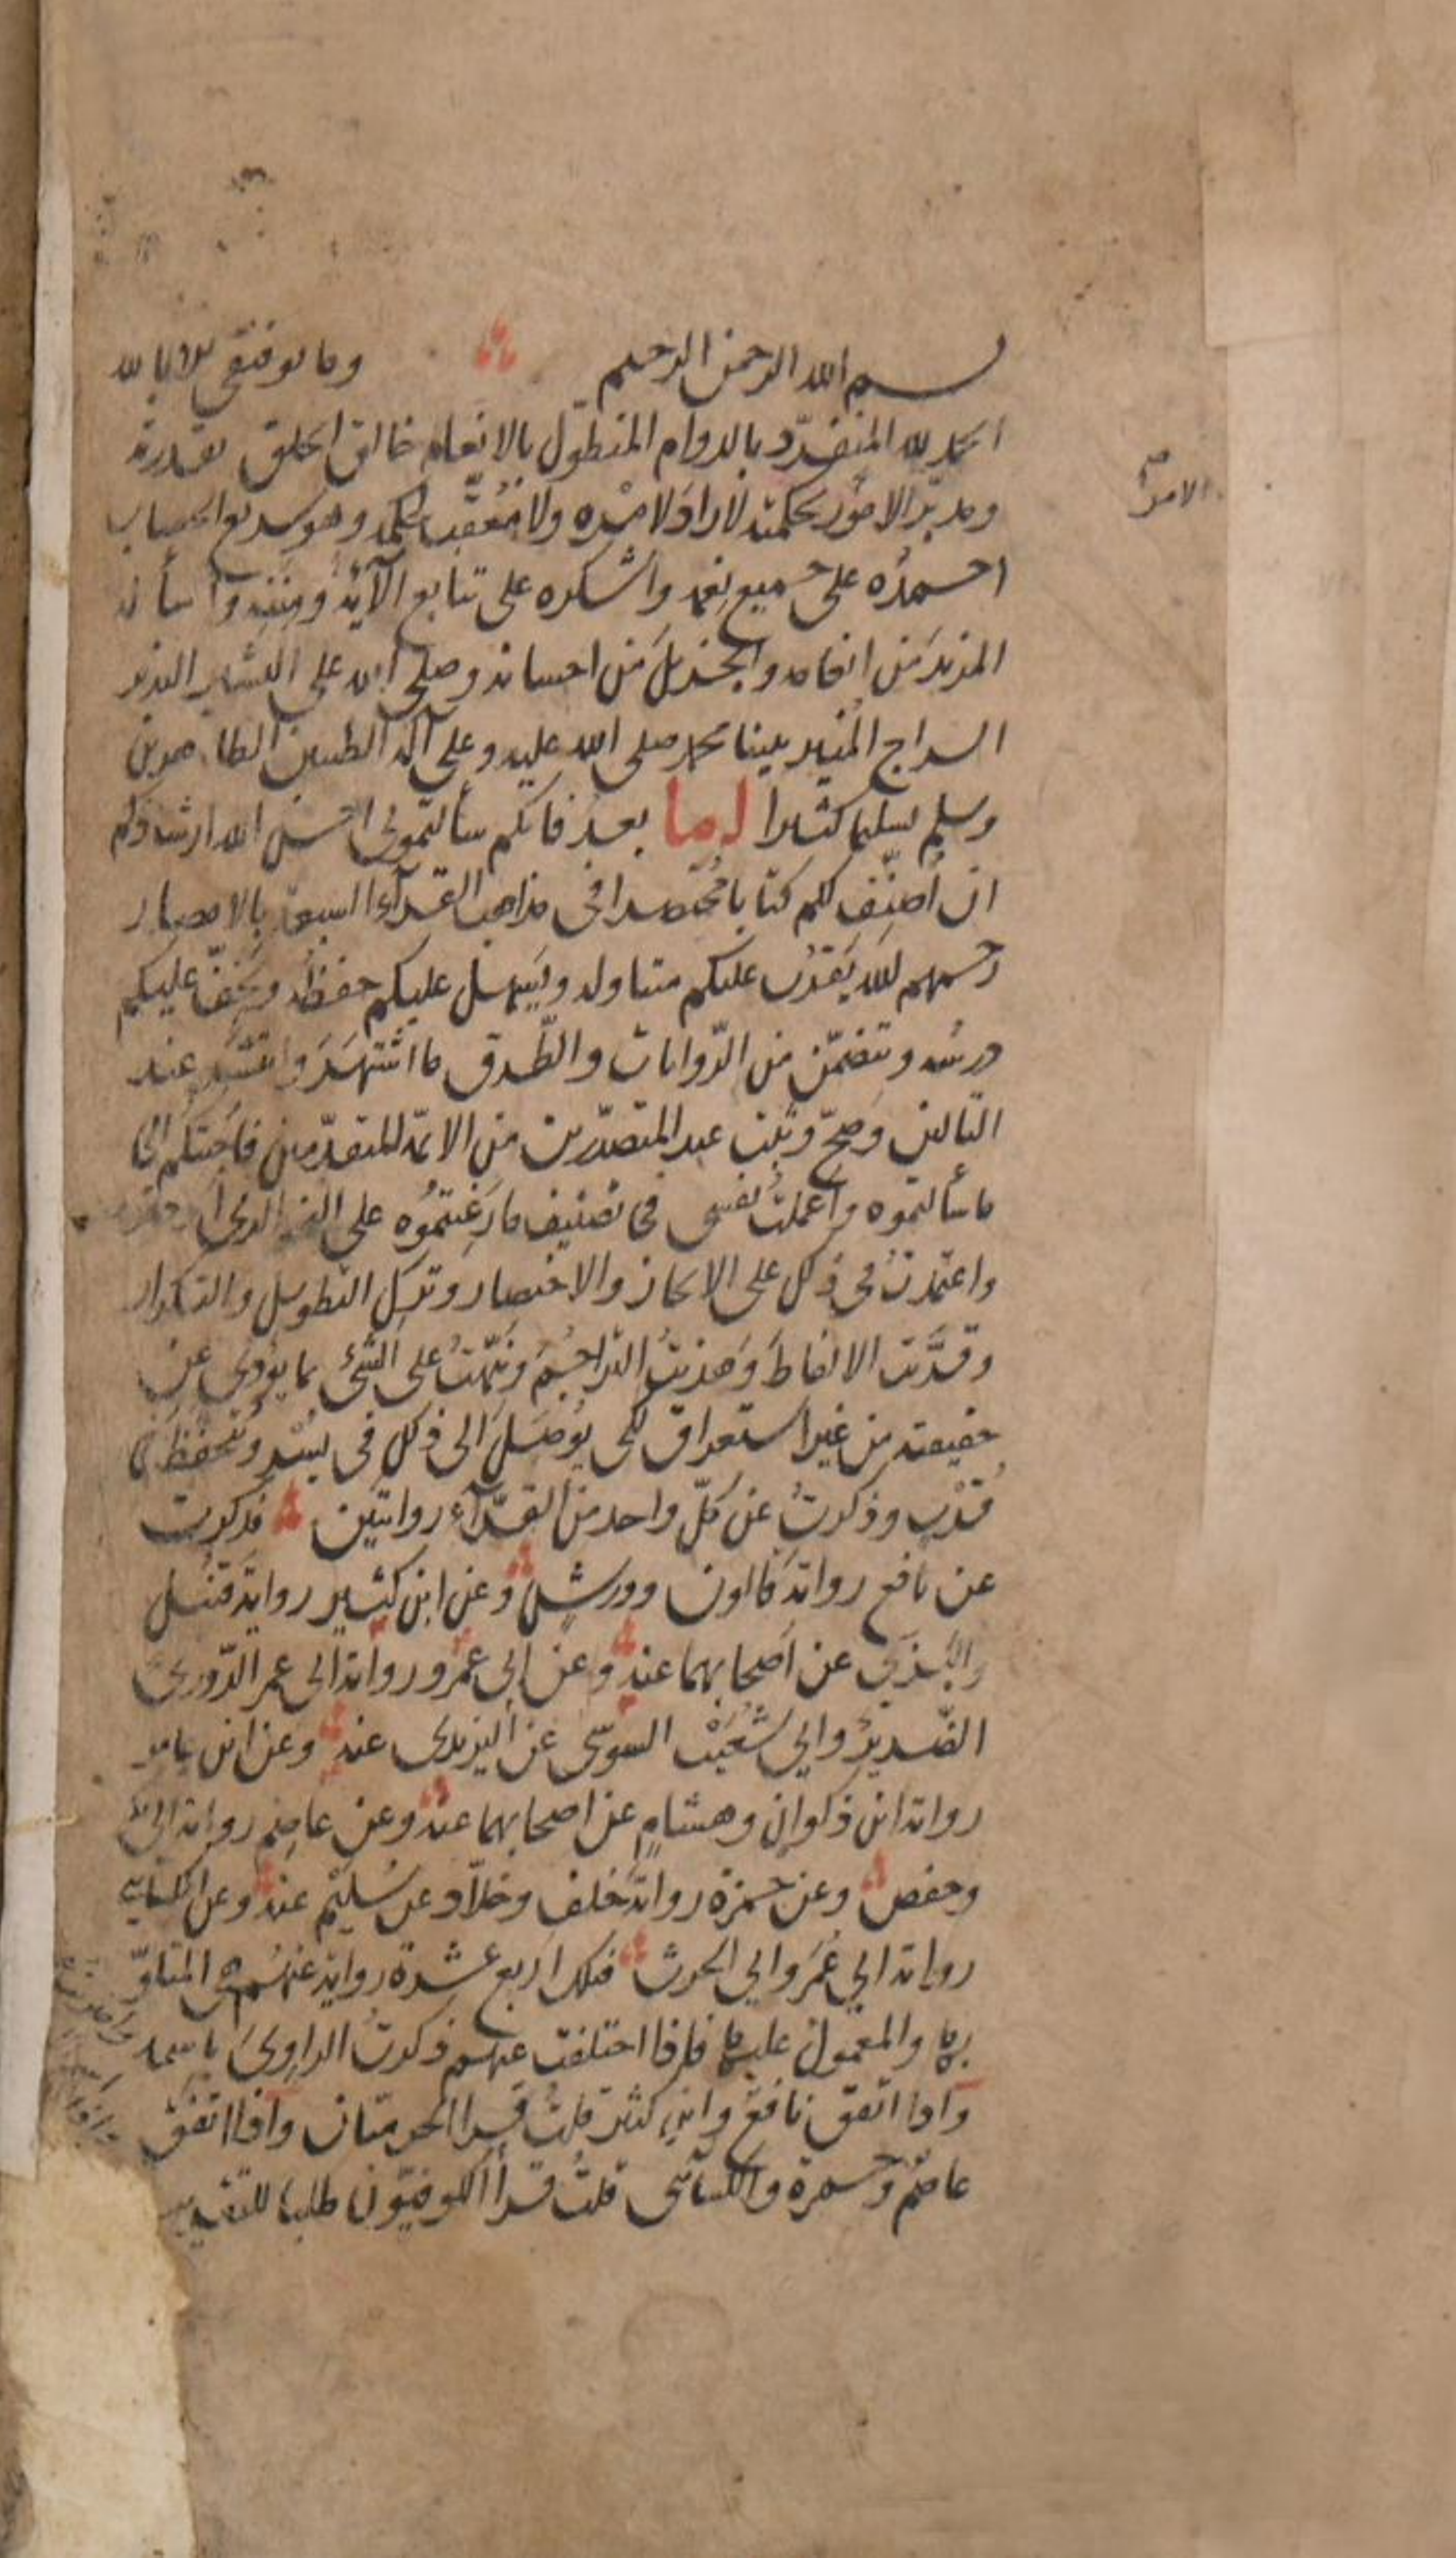 بسم الله الرحمن الرحيم وما توفيقى الا بالله
الحمد لله المنفرّد بالدوام المتطوّل بالانعام خالق الخلق بقدرته
ومدبّر الامور بحكمته لا رادّ لامره ولا مُعَقّب لحكمه وهو سريع الحساب
احمدُه على جميع نعمه واشكره على تتابع آلآئه ومِنَنِه واسأله
المزيدَ من انعامه والجزيلَ من احسانه وصلى الله على البشير النذير
السراج المُنير نبينا محمد صلى الله عليه وعلى آله الطيبين الطاهرين
وسلم تسليما كثيرا اما بعد فانكم سألتمونى احسن الله ارشادكم
ان اُصنّف لكم كتابا مُختصرا فى مذاهب القرآء السبعة بالامصار
رحمهم الله يَقرُب عليكم متناوله ويَسهل عليكم حفظُه ويَخفّ عليكم
درسُه ويتضمّن من الرّوايات والطّرق ما اشتهَرَ وانتشر عند
التالين وصَحّ وثبت عند المتصدّرين من الائمّة المتقدّمين فاجبتكم الى
ما سألتموه واعملتُ نفسى فى تصنيف ما رَغِبتمُوه على النحو الذى
واعتمدتُ فى ذلك على الايجاز والاختصار وترك التطويل والتكرار
وقرَّبت الالفاظَ وَهذبتُ التراجُمَ ونبّهتُ على الشئ بما يؤدى عن
حقيقته من غير استغراق لكى يُوصَل الى ذلك فى يُسْر ويُتحفّظ فى
قُرْب وذكرتُ عن كلّ واحد من القرّآء روايتين فذكرت
عن نافع رواية قالون وورش وعن ابن كثير رواية قنبل
والبَزّى عن اصحابهما عنه وعن ابى عَمْرو رواية ابى عمر الدّورى
الضّرير وابي شُعَيْب السوسى عن اليزيدى عنه وعن ابن عامر
رواية ابن ذكوان وهشامٍ عن اصحابهما عنه وعن عاصم رواية ابى بكر
وحفص وعن حمزة رواية خلف وخلاّد عن سُليْم عنه وعن الكسائى
رواية ابي عُمَر وابي الحرث فتلك اربع عشرة رواية عنهُم هى المتلوّ
بها والمعمول عليها فاذا اختلفت عنهم ذكرتُ الراوِىَ باسمه
واذا اتّفق نافعٌ وابن كثير قلتُ قرا الحرميّان واذا اتفق
عاصمٌ وحمزة والكسآئى قلتُ قرأ الكوفيّون طلبا للتقريب